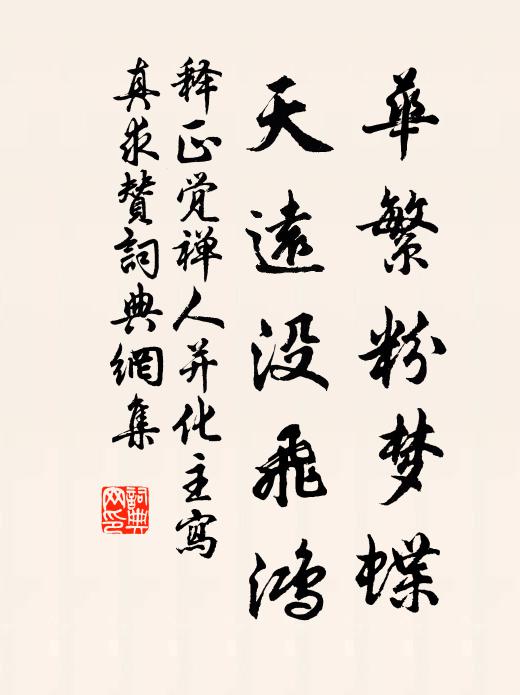 華繁粉梦蝶
天遠没飛鸿
释正觉禅人并化主寫
真求賛詞典網集
詞典
网印